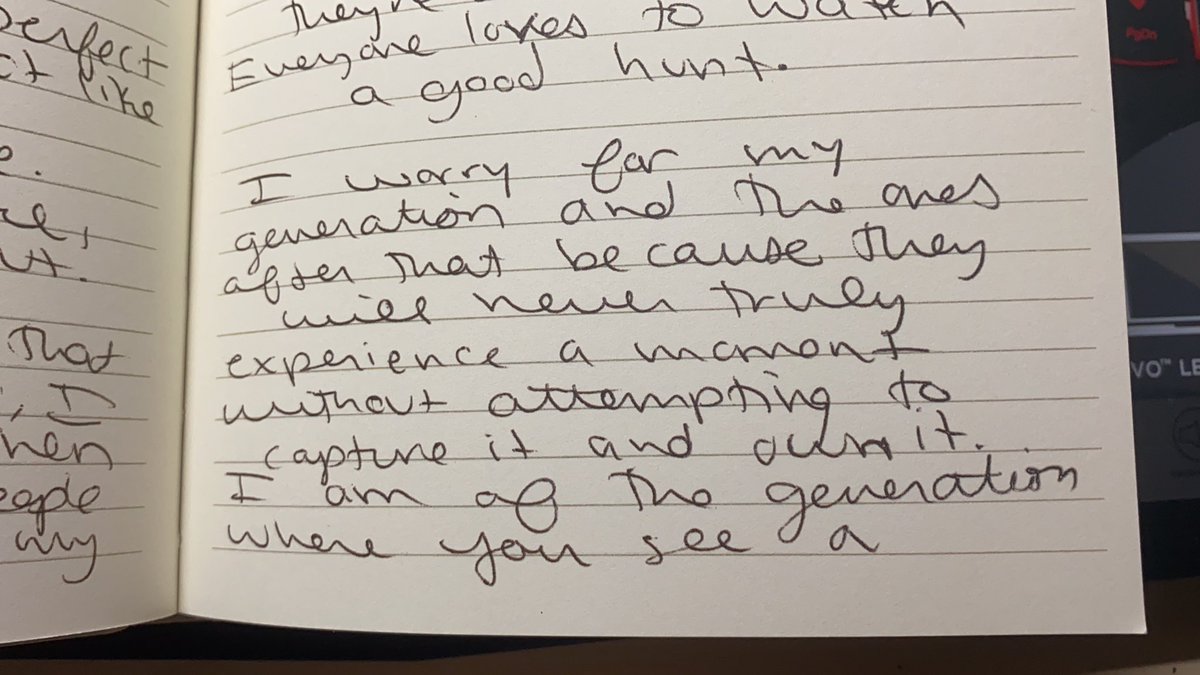 perfect
ct like
e.
ut.
That
, I
hen
eople
my
they're
Everyone loves to watch
a good hunt.
I worry for my
generation and the ones
after that because they
will never truly
experience a moment
without attempting to
capture it and own it.
I am of the generation
where you see a
PgDn
VO™ LE